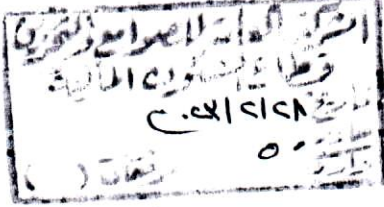 الشركة العامة للصوامع والتخزين
قطاع الشئون المالية
تاريخ ٢٠٢٤/٢/٢٨
٥٠
مرفقات ( )